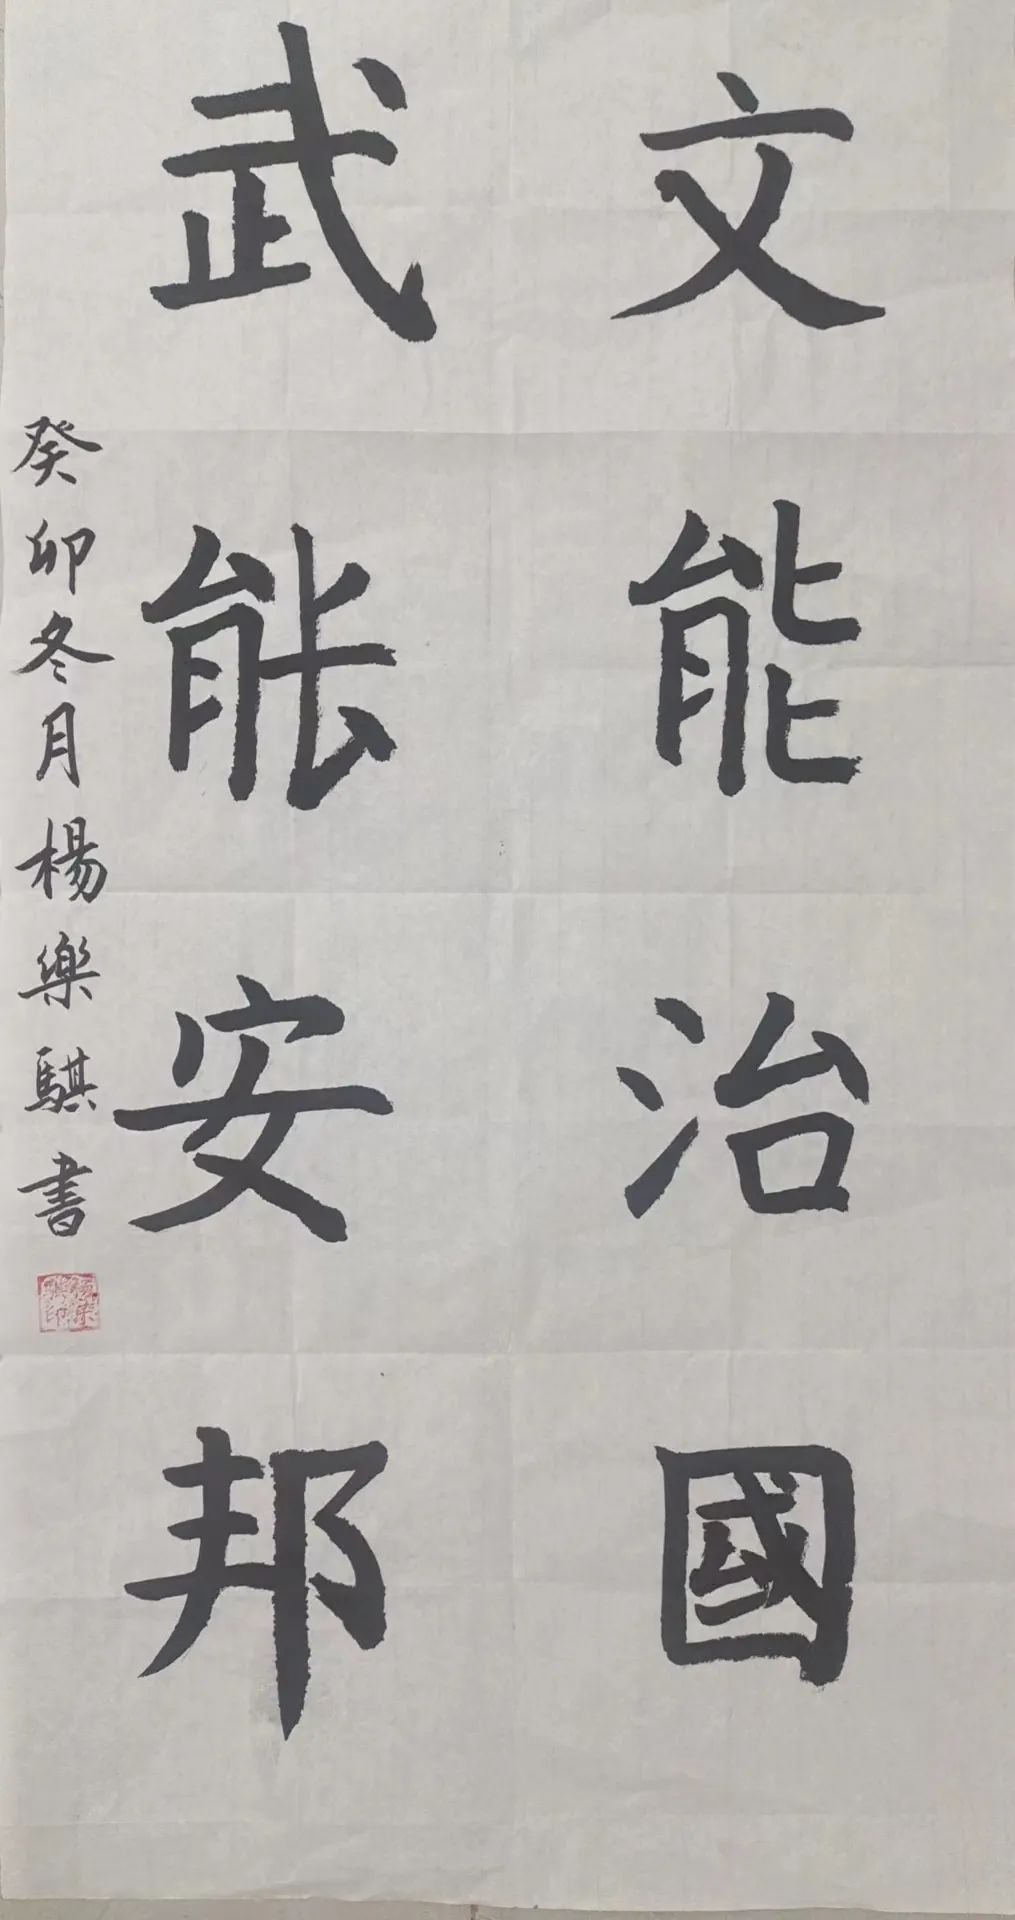 文能治國
武能安邦
癸卯冬月楊樂騏書
楊樂騏印